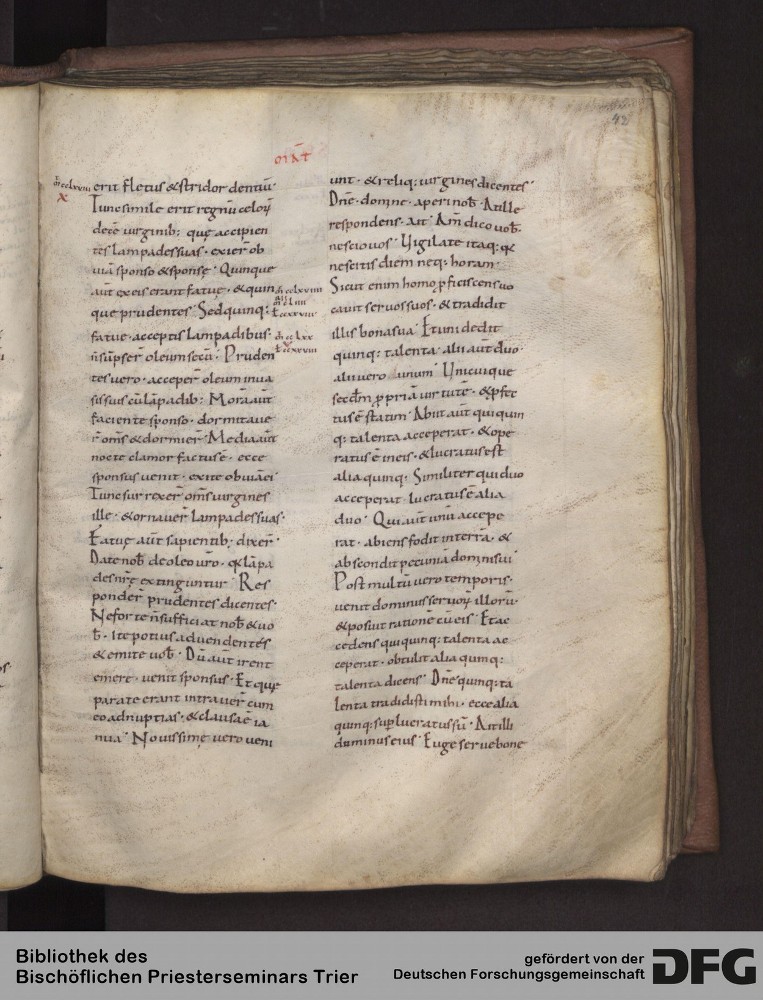 42
erit fletus & stridor dentiū·
Tunc simile erit regnū celoꝝ
decē uirginib; quę accipien
tes lampades suas· exier̄ ob
uiā sponso & sponse· Quinque
aūt ex eis erant fatuę· & quin
que prudentes· Sed quinq;
fatuę· acceptis lampadibus·
n̄ sūpser̄ oleum secū· Pruden
tes uero· acceper̄ oleum in ua
sis suis cū lāpadib; Morā aūt
faciente sponso· dormitaue
r̄ om̄s & dormier̄· Media aūt
nocte clamor factus ē· ecce
sponsus uenit· exite obuiā ei·
Tunc surrexer̄ om̄s uirgines
ille· & ornauer̄ lampades suas·
Fatuę aūt sapientib; dixer̄·
Date nob̄ de oleo ur̄o· q̄a lāpa
des nr̄ę extinguntur· Res
ponder̄ prudentes dicentes·
Ne forte n̄ sufficiat nob̄ & uo
b̄· ite potius ad uendentes
& emite uob̄· Dū aūt irent
emere· uenit sponsus· Et quę
paratę erant intrauer̄ cum
eo ad nuptias· & clausa ē ia
nua· Nouissimę uero ueni
unt· & reliq; uirgines dicentes·
Dn̄e· domne· aperi nob̄· At ille
respondens· ait· Am̄ dico uob̄·
nescio uos· Uigilate itaq; q̄a
nescitis diem neq; horam·
Sicut enim homo ꝓficiscens uo
cauit seruos suos· & tradidit
illis bona sua· Et uni dedit
quinq; talenta· alii aūt duo·
alii uero unum· Unicuique
secdm̄ ꝓpriā uirtutē· & ꝓfec
tus ē statim· Abiit aūt qui quin
q; talenta acceperat· & ope
ratus ē in eis· & lucratus est
alia quinq; Similiter qui duo
acceperat· lucratus ē alia
duo· Qui aūt unū accepe
rat· abiens fodit in terrā· &
abscondit pecuniā domni sui·
Post multū uero temporis·
uenit dominus seruoꝝ illorū·
& posuit rationē cū eis· Et ac
cedens qui quinq; talenta ac
ceperat· obtulit alia quinq;
talenta dicens· Dn̄e quinq; ta
lenta tradidisti mihi· ecce alia
quinq; sup̄lucratus sū· Ait illi
dominus eius· Euge serue bone
Bibliothek des
Bischöflichen Priesterseminars Trier
gefördert von der
Deutschen Forschungsgemeinschaft
DFG